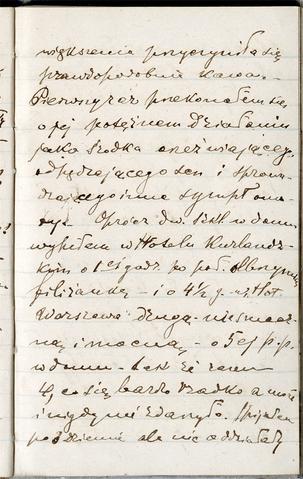 większenia przyczyniła się
prawdopodobnie kawa. -
Pierwszy raz przekonałem się
o jej potężnem działaniu
jako środka orzeźwiającego
odpędzającego sen i sprowa-
dzającego inne symptoma-
Oprócz dw. szkl w domu
wypiłem w Hotelu Kurlandz-
kim o 1ej godz. po poł.
filiżankę - i o 4 ½ g. w Hot.
Warszawa drugą - niesmacz-
ną i mocną, - o 5ej p.p.
w domu - tak że razem
4, co się bardzo rzadko a może
i nigdy nie zdarzyło.
po dziennie ale nie oddziałały